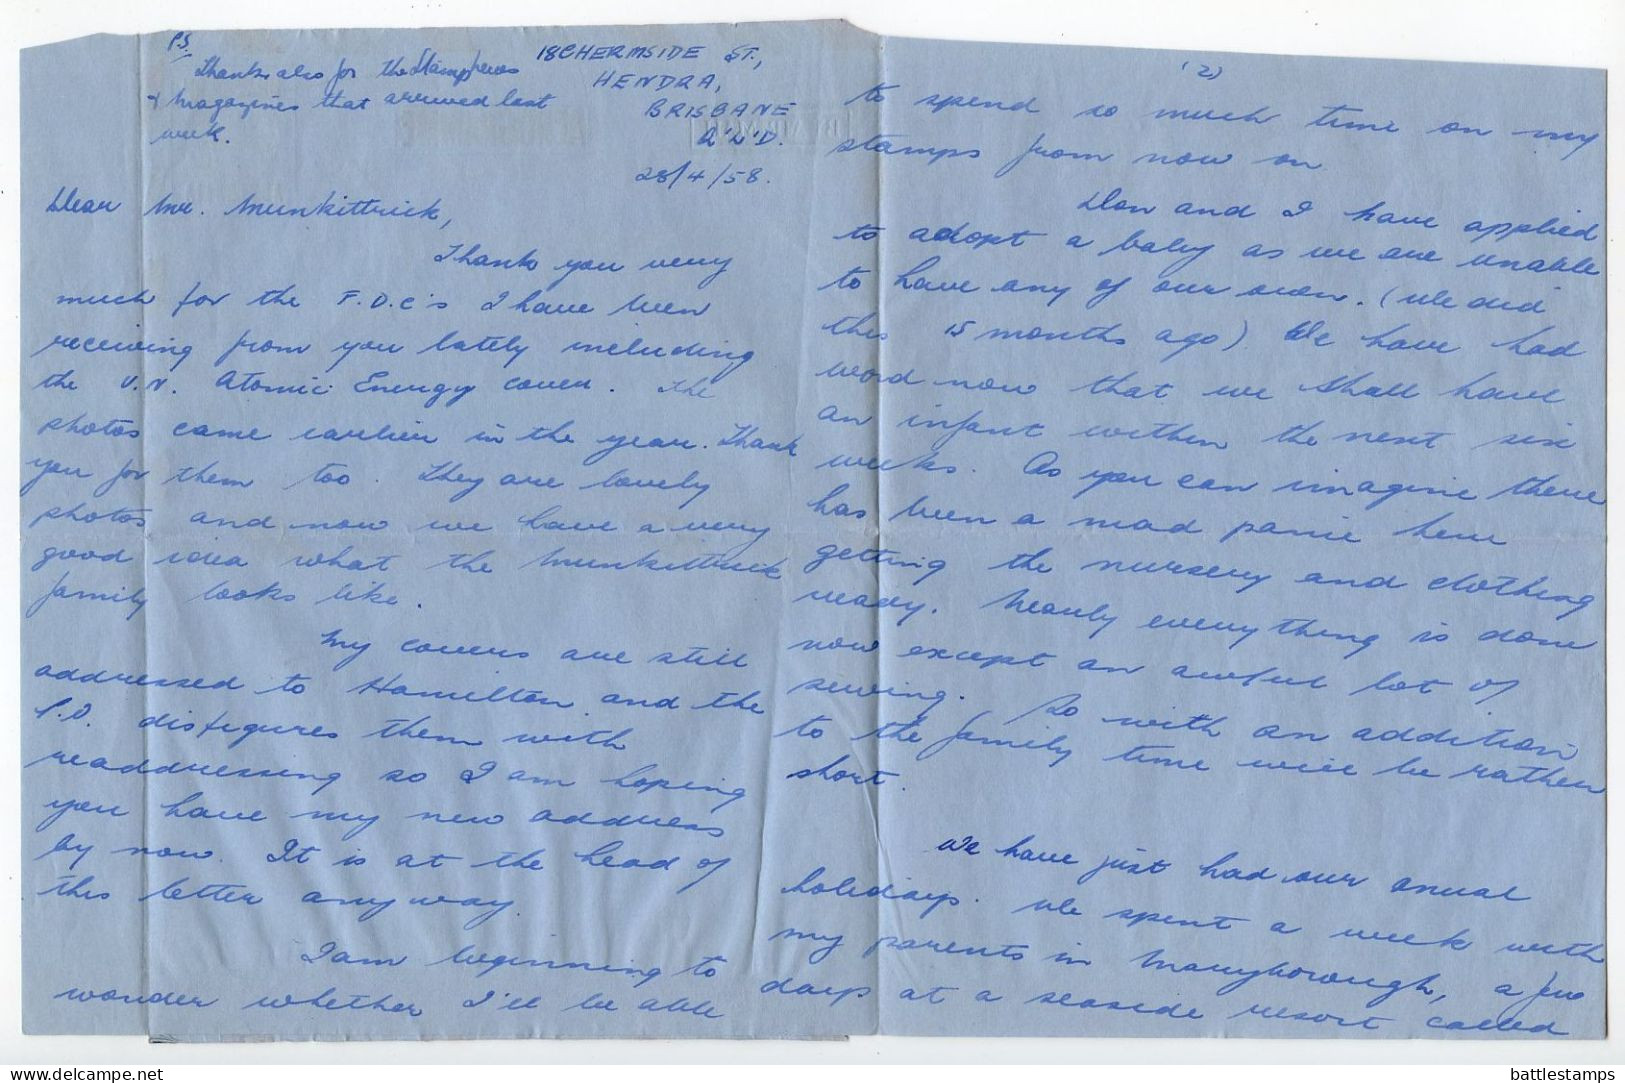 P.S.
Thanks also for the Stampnews
& magazines that arrived last
week.
18 CHERMSIDE ST.,
HENDRA,
BRISBANE
Q'L'D.
28/4/58.
Dear Mr. Munkittrick,
Thank you very
much for the F.D.C's I have been
receiving from you lately including
the U.N. Atomic Energy cover. The
photos came earlier in the year. Thank
you for them too. They are lovely
photos and now we have a very
good idea what the Munkittrick
family looks like.
My covers are still
addressed to Hamilton and the
P.O. disfigures them with
readdressing so I am hoping
you have my new address
by now. It is at the head of
this letter anyway.
I am beginning to
wonder whether I'll be able
(2)
to spend so much time on my
stamps from now on.
Don and I have applied
to adopt a baby as we are unable
to have any of our own. (We did
this 15 months ago). We have had
word now that we shall have
an infant within the next six
weeks. As you can imagine there
has been a mad panic here
getting the nursery and clothing
ready. Nearly everything is done
now except an awful lot of
sewing. So with an addition
to the family time will be rather
short.
We have just had our anual
holidays. We spent a week with
my parents in Maryborough, a few
days at a seaside resort called
battlestamps